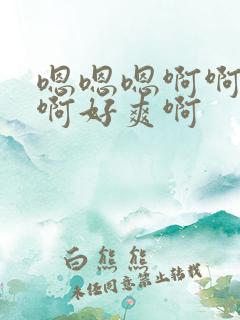 嗯嗯嗯啊啊
啊好爽啊
白熊熊
未经同意禁止转载